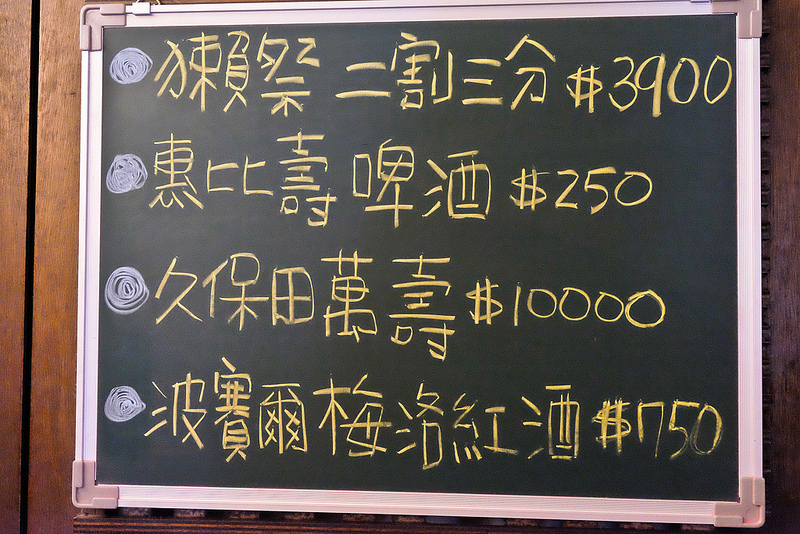 獺祭 二割三分 $3900
惠比壽 啤酒 $250
久保田萬壽 $10000
波賽爾梅洛紅酒 $1750